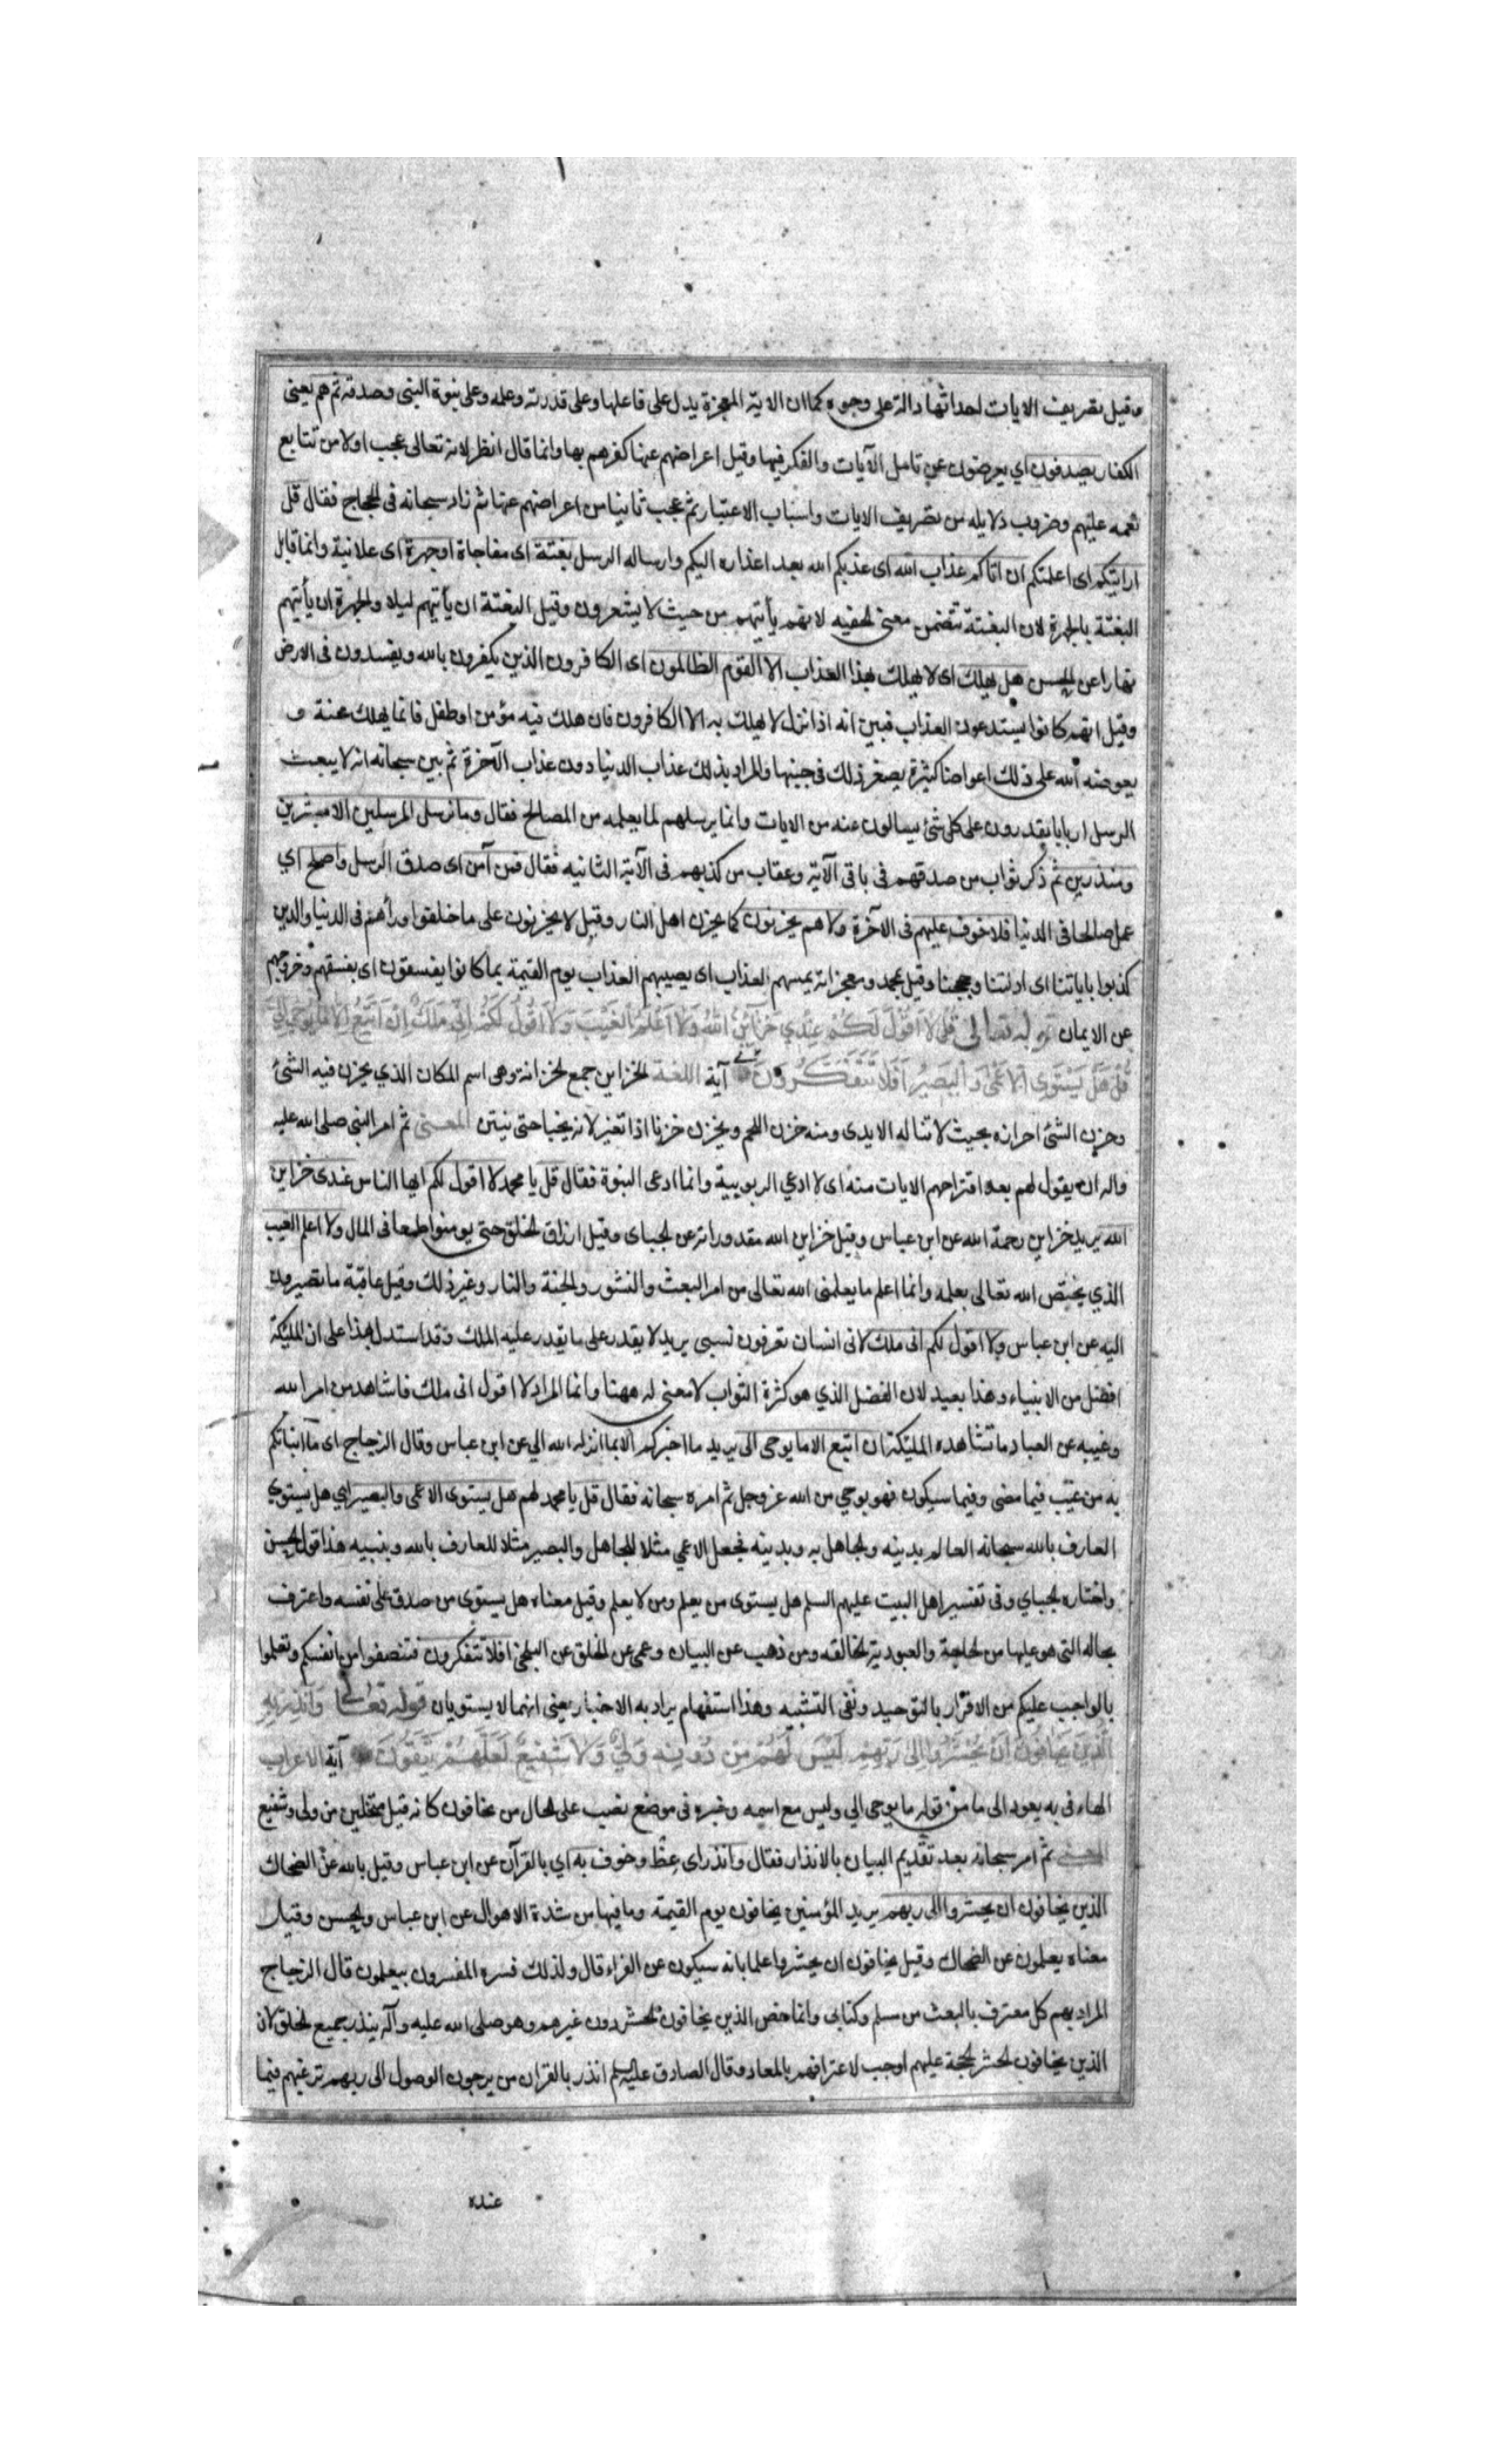 وقيل تصريف الايات احداثها دالة على وجوه كما ان الاية المعجزة يدل على فاعلها وعلى قدرته وعلمه وعلى نبوة النبى وصدقه ثم هم يعنى
الكفار يصدفون اي يعرضون عن تامل الآيات والفكر فيها وقيل اعراضهم عنها كفرهم بها وانما قال انظر لانه تعالى عجب اولا من تتابع
نعمه عليهم وضروب دلايله من تصريف الايات واسباب الاعتبار ثم عجب ثانيا من اعراضهم عنها ثم زاد سبحانه فى الحجاج فقال قل
ارايتكم اى اعلمتكم ان اتاكم عذاب الله اى عذبكم الله بعد اعذاره اليكم وارساله الرسل بغتة اى مفاجاة او جهرة اى علانية وانما قابل
البغتة بالجهرة لان البغتة تتضمن معنى الخفيه لانهم يأتيهم من حيث لا يشعرون وقيل البغتة ان يأتيهم ليلا والجهرة ان يأتيهم
نهارا عن الحسن هل يهلك اى لا يهلك بهذا العذاب الا القوم الظالمون اى الكافرون الذين يكفرون بالله ويفسدون فى الارض
وقيل انهم كانوا يستدعون العذاب فبين انه اذا نزل لا يهلك به الا الكافرون فان هلك فيه مؤمن او طفل فانما يهلك محنة و
يعوضه الله على ذلك اعواضا كثيرة يصغر ذلك فى جنبها والمراد بذلك عذاب الدنيا دون عذاب الآخرة ثم بين سبحانه انه لا يبعث
الرسل اربابا يقدرون على كل شئ يسالون عنه من الايات وانما يرسلهم لما يعلمه من المصالح فقال وما نرسل المرسلين الا مبشرين
ومنذرين ثم ذكر ثواب من صدقهم فى باقى الآية وعقاب من كذبهم فى الآية الثانيه فقال فمن آمن اى صدق الرسل واصلح اي
عمل صالحا فى الدنيا فلا خوف عليهم فى الآخرة ولا هم يحزنون كما يحزن اهل النار وقيل لا يحزنون على ما خلفوا وراهم فى الدنيا والذين
كذبوا باياتنا اى ادلتنا وحججنا وقيل بمحمد ومعجزاته يمسهم العذاب اى يصيبهم العذاب يوم القيمة بما كانوا يفسقون اى بفسقهم وخروجهم
عن الايمان قوله تعالى قُل لَا اَقُولُ لَكُمْ عِنْدِي خَزَآئِنُ اللهِ وَلَا اَعْلَمُ الْغَيْبَ وَلَا اَقُولُ لَكُمْ اِنِّي مَلَكٌ اِنْ اَتَّبِعُ اِلَّا مَا يُوحَى اِلَيَّ
قُلْ هَلْ يَسْتَوِى الْاَعْمَى وَالْبَصِيرُ اَفَلَا تَتَفَكَّرُونَ آية اللغة الخزاين جمع الخزانة وهى اسم المكان الذي يخزن فيه الشئ
وخزن الشئ احرازه بحيث لا تناله الايدى ومنه خزن اللحم ويخزن خزنا اذا تغير لانه يخبا حتى ينتن المعنى ثم امر النبى صلى الله عليه
واله ان يقول لهم بعد اقتراحهم الايات منه اى لا ادعي الربوبية وانما ادعى النبوة فقال قل يا محمد لا اقول لكم ايها الناس عندى خزاين
الله يريد خزاين رحمة الله عن ابن عباس وقيل خزاين الله مقدوراته عن الجباى وقيل ارزاق الخلق حتى يومنوا طمعا فى المال ولا اعلم الغيب
الذي يختص الله تعالى بعلمه وانما اعلم ما يعلمنى الله تعالى من امر البعث والنشور والجنة والنار وغير ذلك وقيل عاقبة ما تصيرون
اليه عن ابن عباس ولا اقول لكم انى ملك لانى انسان تعرفون نسبى يريد لا يقدر على ما يقدر عليه الملك وقد استدل بهذا على ان المليكة
افضل من الانبياء وهذا بعيد لان الفضل الذي هو كثرة الثواب لا معنى له ههنا وانما المراد لا اقول انى ملك فاشاهد من امر الله
وغيبه عن العباد ما تشاهده المليكة ان اتبع الا ما يوحى الى يريد ما اخبركم الا بما انزله الله الي عن ابن عباس وقال الزجاج اى ما انبأتكم
به من غيب فيما مضى وفيما سيكون فهو بوحي من الله عز وجل ثم امره سبحانه فقال قل يا محمد لهم هل يستوى الاعمى والبصير اي هل يستوي
العارف بالله سبحانه العالم بدينه والجاهل به وبدينه فجعل الاعمي مثلا للجاهل والبصير مثلا للعارف بالله وبنبيه هذا قول الحسن
واختاره الجباي وفى تفسير اهل البيت عليهم السلم هل يستوى من يعلم ومن لا يعلم وقيل معناه هل يستوى من صدق على نفسه واعترف
بحاله التى هو عليها من الحاجة والعبودية لخالقه ومن ذهب عن البيان وعمى عن الحق عن البلخى افلا تتفكرون فتنصفوا من انفسكم وتعلموا
بالواجب عليكم من الاقرار بالتوحيد ونفى التشبيه وهذا استفهام يراد به الاخبار يعنى انهما لا يستويان قوله تعالى وَاَنْذِرْ بِهِ
الَّذِينَ يَخَافُونَ اَنْ يُحْشَرُوا اِلَى رَبِّهِمْ لَيْسَ لَهُمْ مِنْ دُونِهِ وَلِيٌّ وَلَا شَفِيعٌ لَعَلَّهُمْ يَتَّقُونَ آية الاعراب
الهاء فى به يعود الى ما من قوله ما يوحى الي وليس مع اسمه وخبره فى موضع نصب على الحال من يخافون كانه قيل متخلين من ولى وشفيع
المعنى ثم امر سبحانه بعد تقديم البيان بالانذار فقال وانذر اى عظ وخوف به اي بالقرآن عن ابن عباس وقيل بالله عن الضحاك
الذين يخافون ان يحشروا الى ربهم يريد المؤمنين يخافون يوم القيمة وما فيها من شدة الاهوال عن ابن عباس والحسن وقيل
معناه يعلمون عن الضحاك وقيل يخافون ان يحشروا علما بانه سيكون عن الفراء قال ولذلك فسره المفسرون بيعلمون قال الزجاج
المراد بهم كل معترف بالبعث من مسلم وكتابى وانما خص الذين يخافون الحشر دون غيرهم وهو صلى الله عليه وآله ينذر جميع الخلق لان
الذين يخافون الحشر الحجة عليهم اوجب لاعترافهم بالمعاد وقال الصادق عليه السلم انذر بالقران من يرجون الوصول الى ربهم ترغبهم فيما
عنده